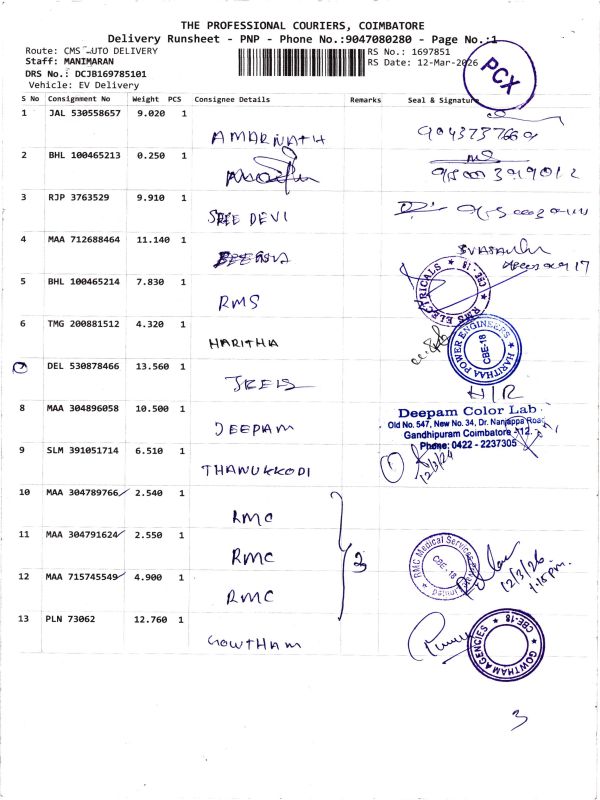 THE PROFESSIONAL COURIERS, COIMBATORE
Delivery Runsheet - PNP - Phone No.:9047080280 - Page No.:1
Route: CMS AUTO DELIVERY
RS No.: 1697851
Staff: MANIMARAN
RS Date: 12-Mar-2026
DRS No.: DCJB169785101
Vehicle: EV Delivery
PCX
S No Consignment No Weight PCS Consignee Details Remarks Seal & Signature
1 JAL 530558657 9.020 1
AMARNATH
2 BHL 100465213 0.250 1
3 RJP 3763529 9.910 1
SREE DEVI
4 MAA 712688464 11.140 1
5 BHL 100465214 7.830 1
RMS
RMS ELECTRICALS ★ CBE - 18 ★
6 TMG 200881512 4.320 1
HARITHA
HARITHAA POWER ENGINEERS ★ CBE-18
DEL 530878466 13.560 1
H/R
8 MAA 304896058 10.500 1
DEEPAM
Deepam Color Lab
Old No. 547, New No. 34, Dr. Nanjappa Road,
Gandhipuram Coimbatore - 12.
Phone: 0422 - 2237305
9 SLM 391051714 6.510 1
THANUKKODI
1
12/3/26
10 MAA 304789766 2.540 1
RMC
11 MAA 304791624 2.550 1
RMC
3
12 MAA 715745549 4.900 1
RMC
RMC Medical Services Private Limited
CBE-18
12/3/26
1.15pm.
13 PLN 73062 12.760 1
GOWTHAM
GOWTHAM AGENCIES ★ CBE-18 ★
3